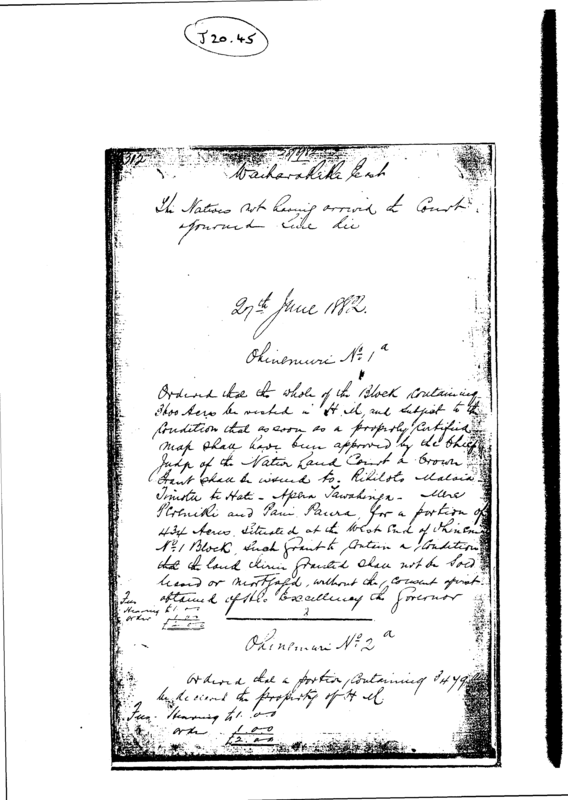 J 20.45
312
Waiharakeke East
The Natives not having arrived the Court
adjourned sine die
27th June 1882.
Ohinemuri No 1a
Ordered that the whole of the Block containing
3600 Acres be vested in H M, and subject to the
condition that as soon as a properly certified
map shall have been approved by the Chief
Judge of the Native Land Court a Crown
Grant shall be issued to
Timotu te Hat - Apera Tawahinga - Mere
and Pani Paura, for a portion of
434 Acres, situated at the West End of Ohinemuri
No 1 Block, such Grant to contain a condition
that the land therein granted shall not be sold
leased or mortgaged, without the consent first
obtained of His Excellency the Governor
Fees
Hearing 1.00
Order 1.00
2.00
Ohinemuri No 2a
Ordered that a portion, containing 3479
be declared the property of H M
Fees Hearing 1.00
order 1.00
£2.00